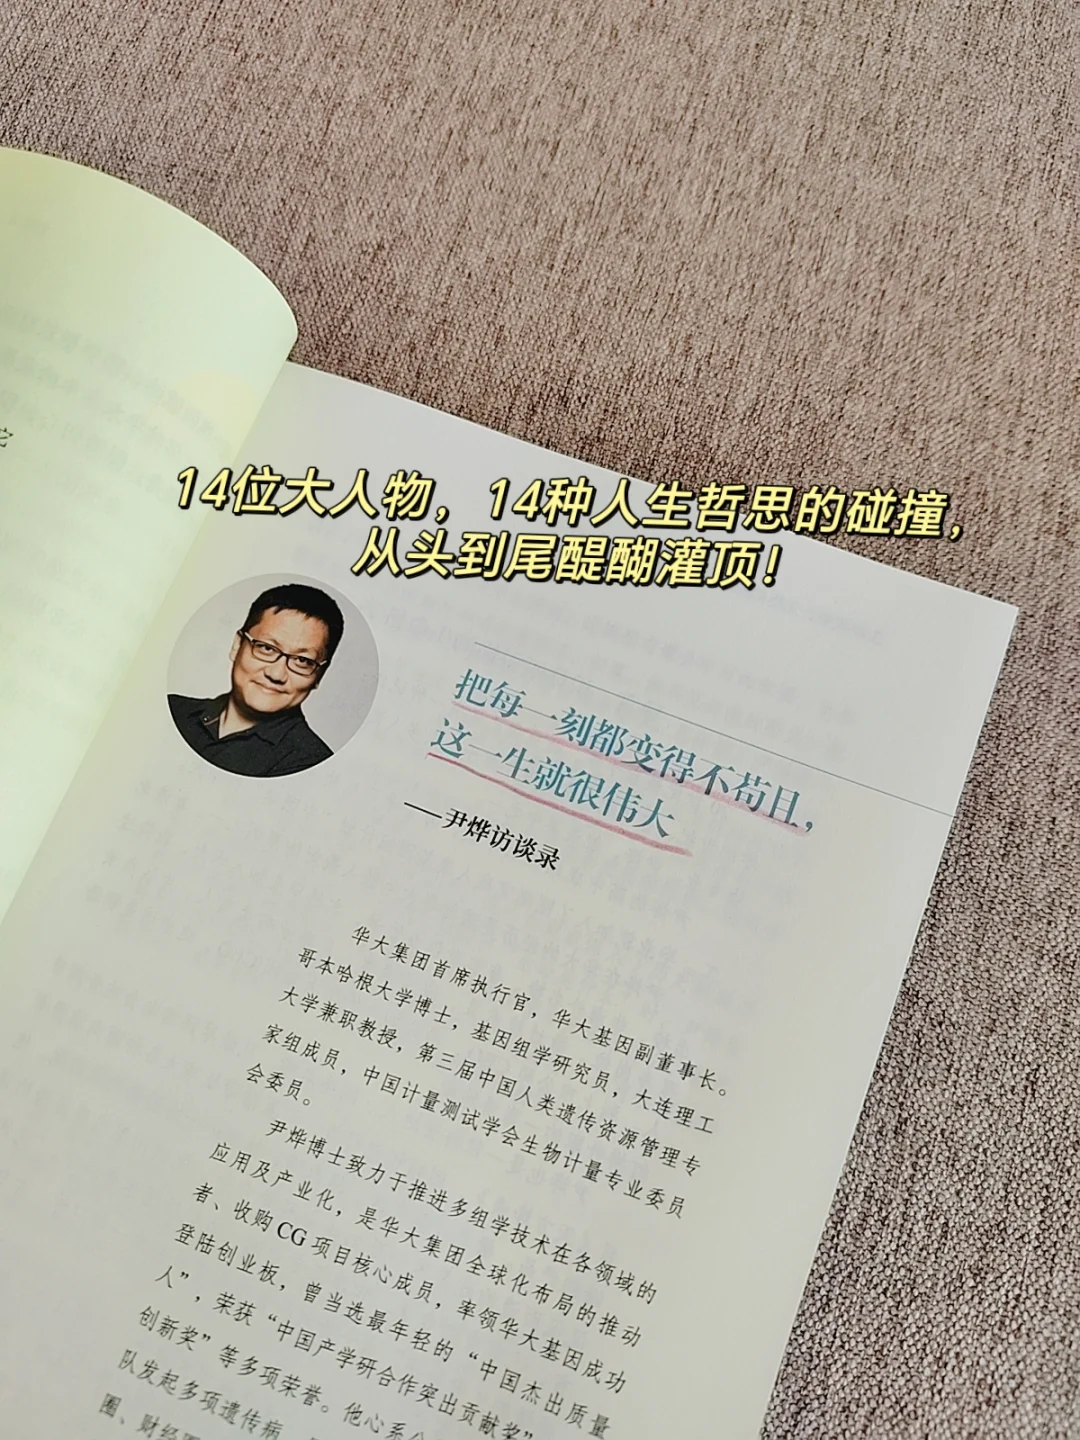 它
14位大人物，14种人生哲思的碰撞，
从头到尾醍醐灌顶！
把每一刻都变得不苟且，
这一生就很伟大
——尹烨访谈录
华大集团首席执行官，华大基因副董事长。
哥本哈根大学博士，基因组学研究员，大连理工
大学兼职教授，第三届中国人类遗传资源管理专
家组成员，中国计量测试学会生物计量专业委员
会委员。
尹烨博士致力于推进多组学技术在各领域的
应用及产业化，是华大集团全球化布局的推动
者、收购CG项目核心成员，率领华大基因成功
登陆创业板，曾当选最年轻的“中国杰出质量
人”，荣获“中国产学研合作突出贡献奖”
创新奖”等多项荣誉。他心系
队发起多项遗传病
圈、财经